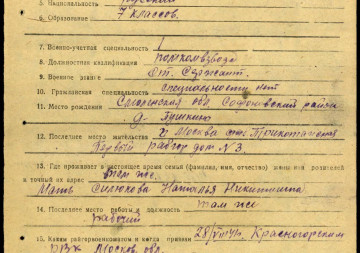 5. Национальность русский
6. Образование 7 классов.
7. Военно-учетная специальность 1
8. Должностная квалификация помкомвзвода
9. Воинское звание Ст. Сержант.
10. Гражданская специальность специальности нет
11. Место рождения Смоленская обл. район
д- Пушкино
12. Последнее место жительства г. Москва
рабгор дом № 3
13. Где проживает в настоящее время семья (фамилия, имя, отчество) жены или родителей
и точный их адрес там же.
Мать Наталья Никитична
14. Последнее место работы и должность там же
рабочий
15. Каким райгорвоенкоматом и когда призван 28/VII 41г. Красногорским
РВК Москов. обл.